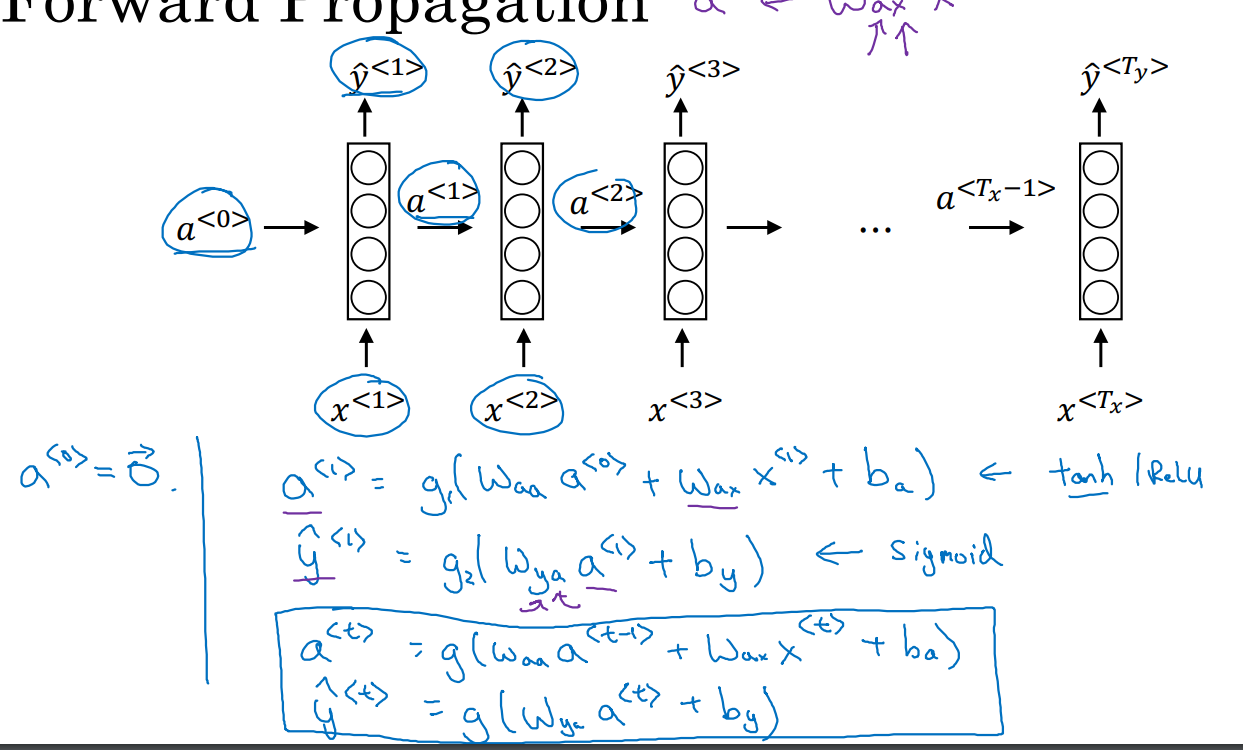 Forward Propagation a ← Wax x
ŷ<1> ŷ<2> ŷ<3> ŷ<Ty>
a<0> a<1> a<2> ... a<Tx−1>
x<1> x<2> x<3> x<Tx>
a<0> = 0⃗.
a<1> = g₁(Waa a<0> + Wax x<1> + ba) ← tanh | ReLU
ŷ<1> = g₂(Wya a<1> + by) ← sigmoid
a<t> = g(Waa a<t-1> + Wax x<t> + ba)
ŷ<t> = g(Wya a<t> + by)